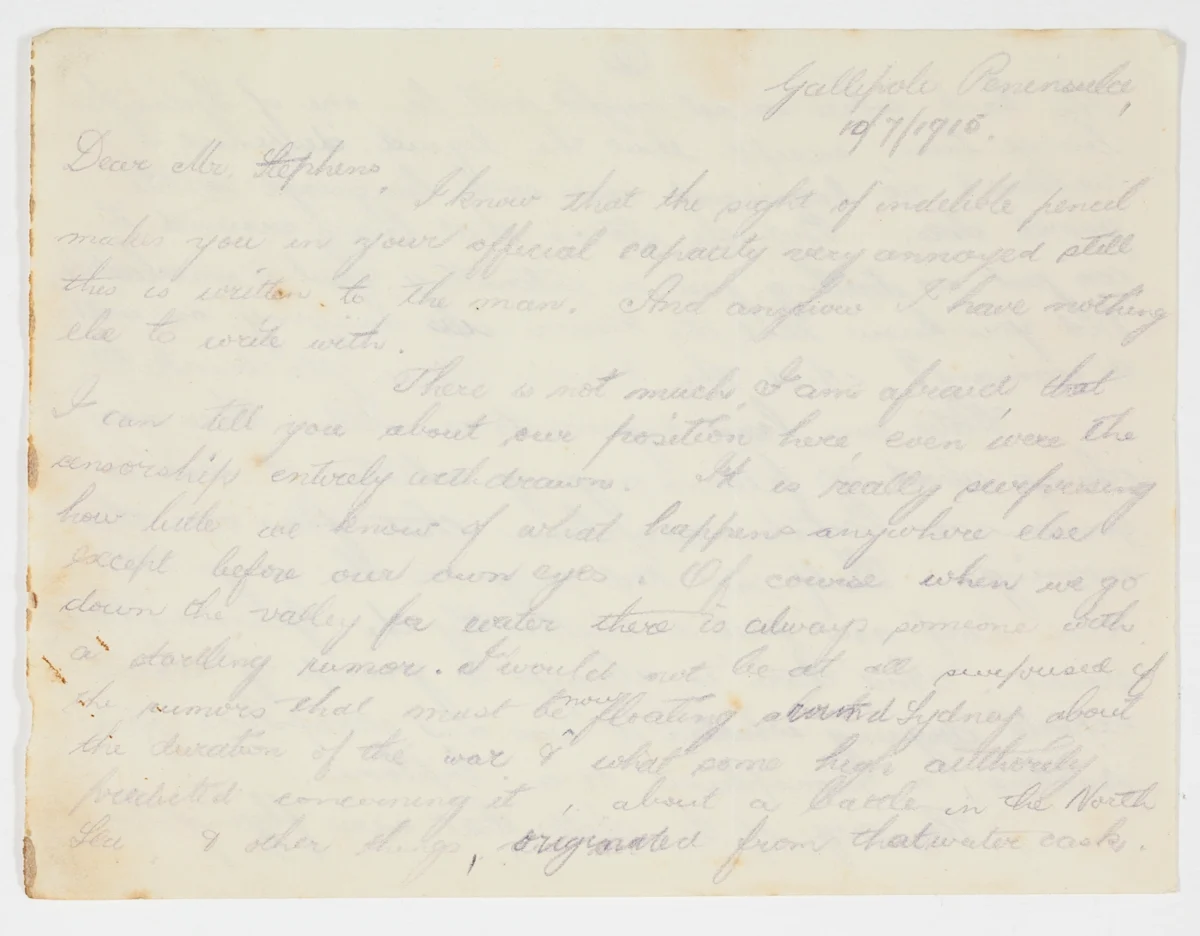 Gallipoli Peninsula,
10/7/1915.
Dear Mr. Stephens,
I know that the sight of indelible pencil
makes you in your official capacity very annoyed still
this is written to the man. And anyhow I have nothing
else to write with.
There is not much, I am afraid that
I can tell you about our position here, even were the
censorship entirely withdrawn. It is really surprising
how little we know of what happens anywhere else
except before our own eyes. Of course when we go
down the valley for water there is always someone with
a startling rumor. I would not be at all surprised if
the rumors that must be now floating around Sydney about
the duration of the war & what some high authority
predicted concerning it, about a battle in the North
Sea, & other things, originated from that water cask.